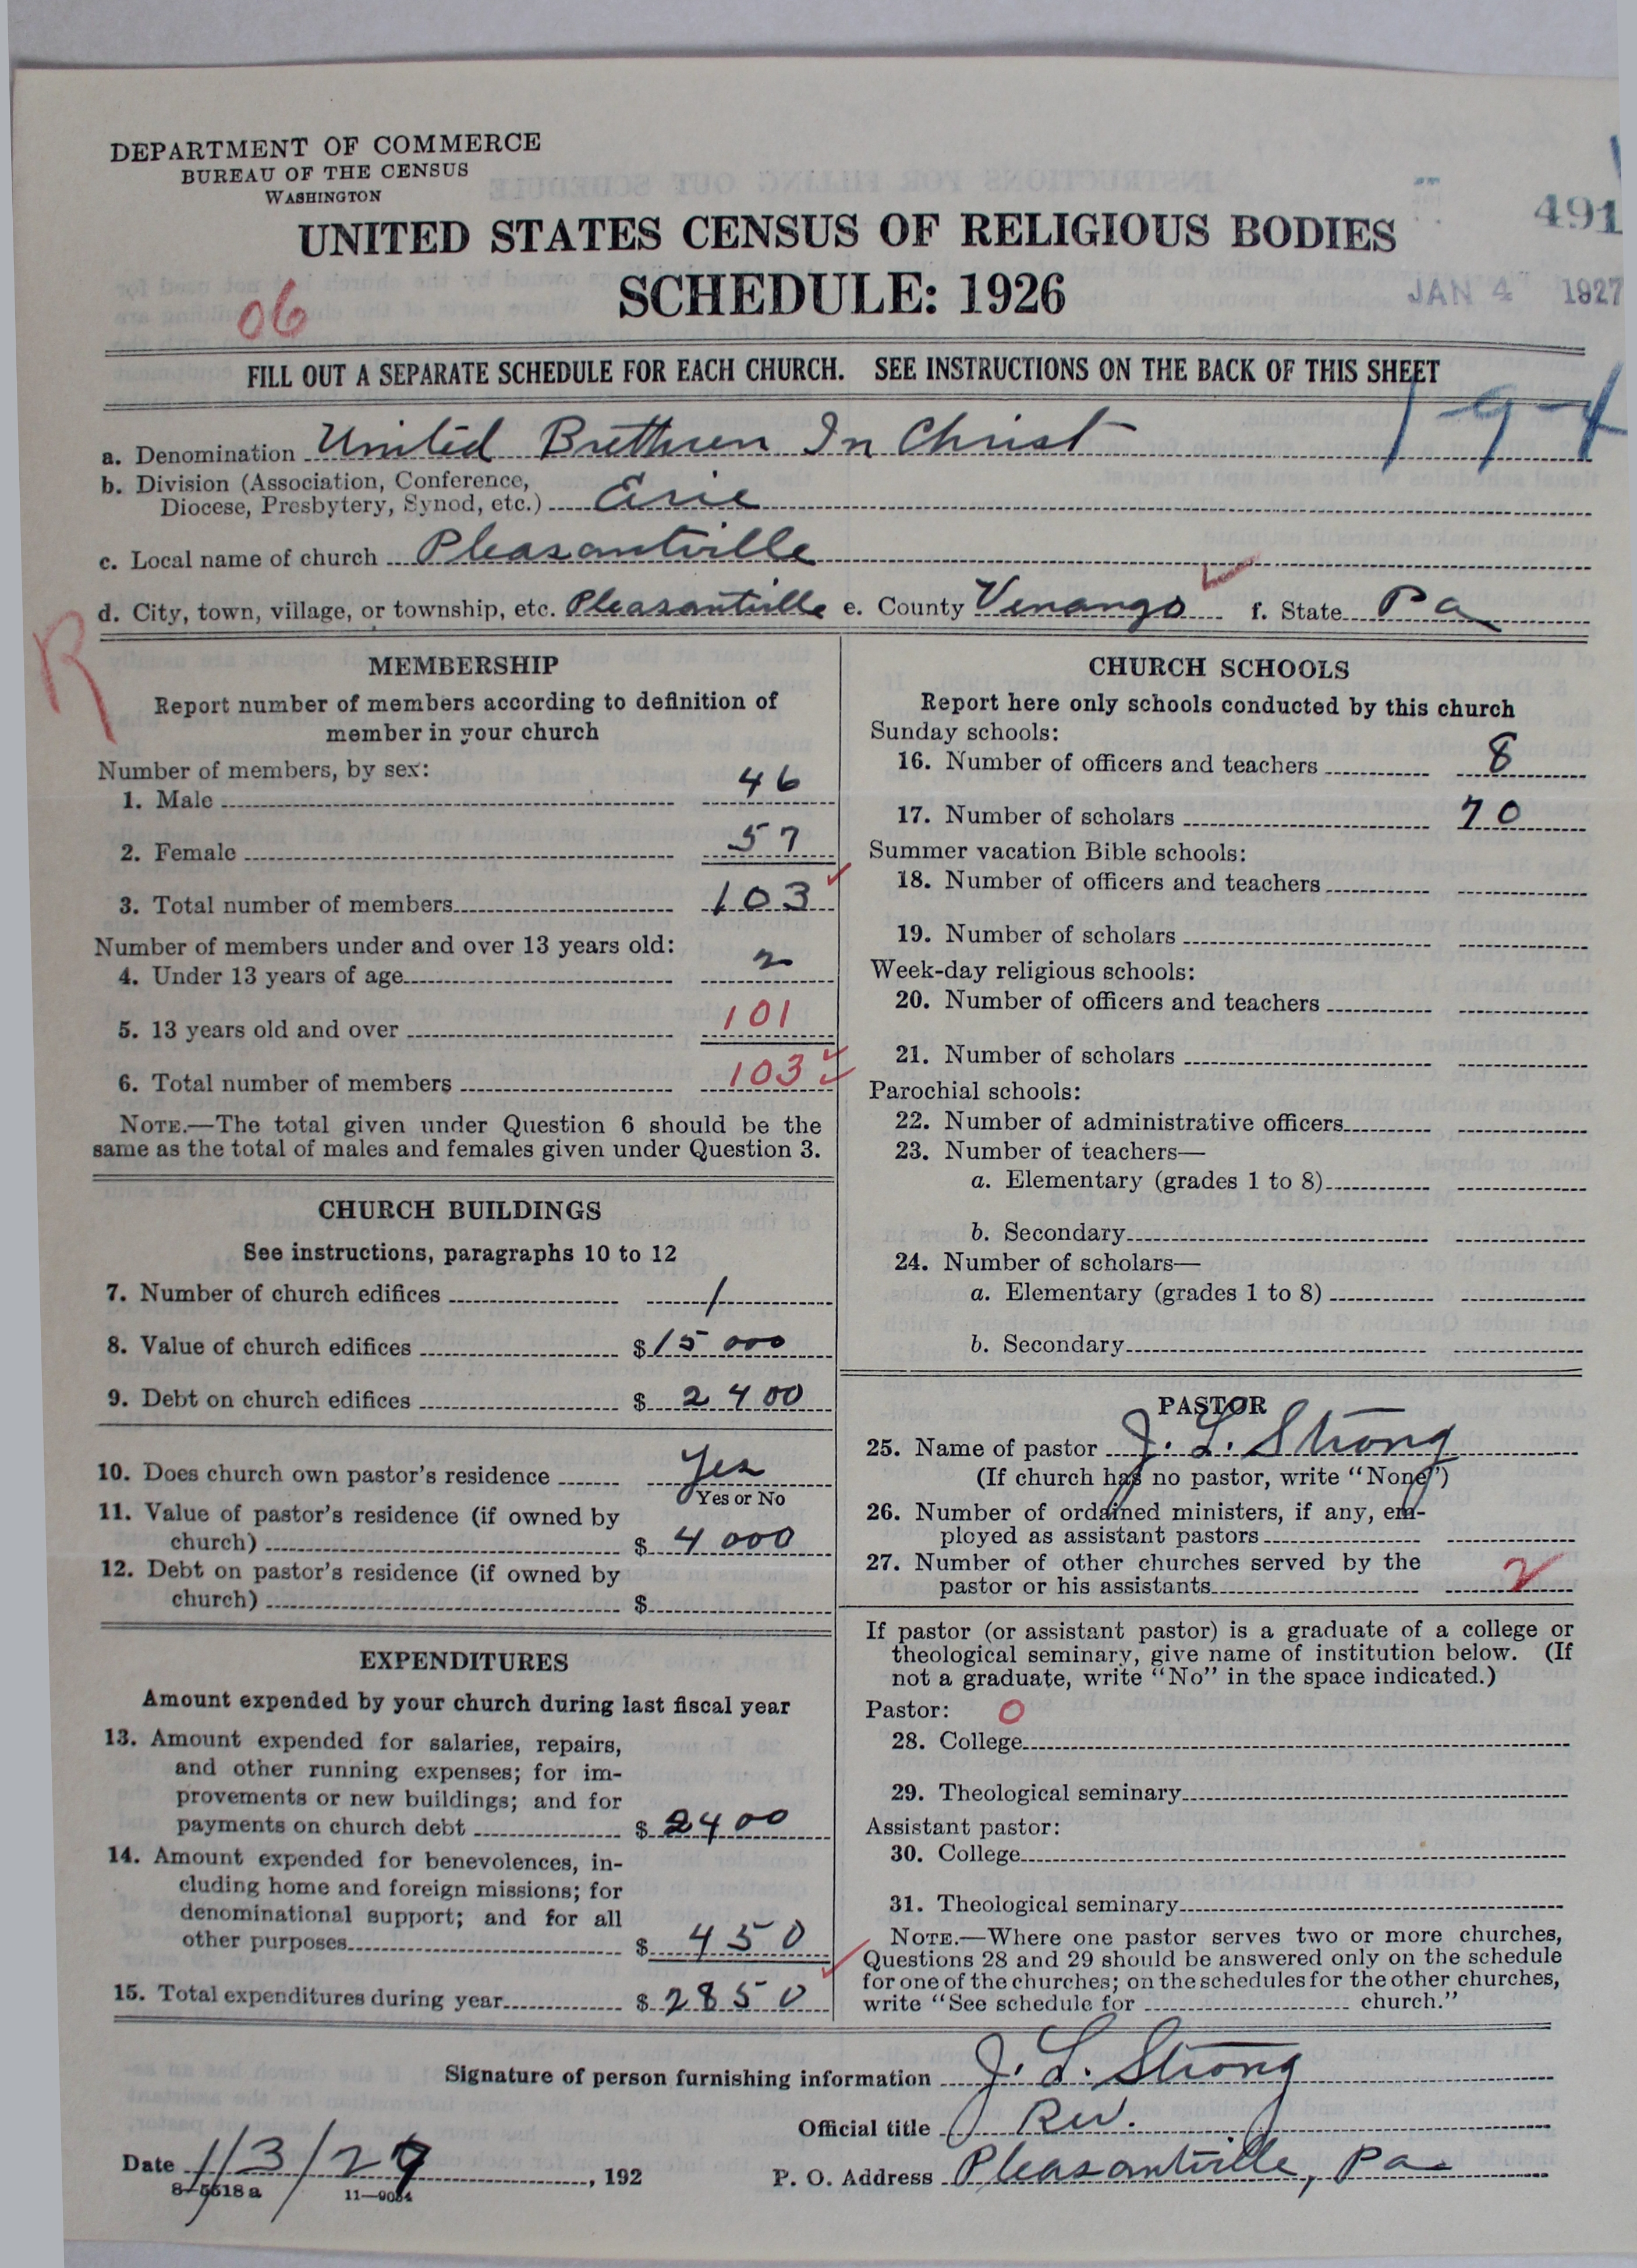 DEPARTMENT OF COMMERCE
BUREAU OF THE CENSUS
WASHINGTON
UNITED STATES CENSUS OF RELIGIOUS BODIES
491
SCHEDULE: 1926
JAN 4 1927
06
FILL OUT A SEPARATE SCHEDULE FOR EACH CHURCH. SEE INSTRUCTIONS ON THE BACK OF THIS SHEET
1-9-4
a. Denomination United Brethren In Christ
b. Division (Association, Conference,
Diocese, Presbytery, Synod, etc.) Erie
c. Local name of church Pleasantville
d. City, town, village, or township, etc. Pleasantville e. County Venango f. State Pa
R
MEMBERSHIP
Report number of members according to definition of
member in your church
Number of members, by sex:
1. Male 46
2. Female 57
3. Total number of members 103
Number of members under and over 13 years old:
4. Under 13 years of age 2
5. 13 years old and over 101
6. Total number of members 103
NOTE.—The total given under Question 6 should be the
same as the total of males and females given under Question 3.
CHURCH BUILDINGS
See instructions, paragraphs 10 to 12
7. Number of church edifices 1
8. Value of church edifices $15 000
9. Debt on church edifices $ 2400
10. Does church own pastor's residence Yes
Yes or No
11. Value of pastor's residence (if owned by
church) $ 4000
12. Debt on pastor's residence (if owned by
church) $
EXPENDITURES
Amount expended by your church during last fiscal year
13. Amount expended for salaries, repairs,
and other running expenses; for im-
provements or new buildings; and for
payments on church debt $ 2400
14. Amount expended for benevolences, in-
cluding home and foreign missions; for
denominational support; and for all
other purposes $ 450
15. Total expenditures during year $ 2850
CHURCH SCHOOLS
Report here only schools conducted by this church
Sunday schools:
16. Number of officers and teachers 8
17. Number of scholars 70
Summer vacation Bible schools:
18. Number of officers and teachers
19. Number of scholars
Week-day religious schools:
20. Number of officers and teachers
21. Number of scholars
Parochial schools:
22. Number of administrative officers
23. Number of teachers—
a. Elementary (grades 1 to 8)
b. Secondary
24. Number of scholars—
a. Elementary (grades 1 to 8)
b. Secondary
PASTOR
25. Name of pastor J. L. Strong
(If church has no pastor, write "None")
26. Number of ordained ministers, if any, em-
ployed as assistant pastors
27. Number of other churches served by the
pastor or his assistants 2
If pastor (or assistant pastor) is a graduate of a college or
theological seminary, give name of institution below. (If
not a graduate, write "No" in the space indicated.)
Pastor: 0
28. College
29. Theological seminary
Assistant pastor:
30. College
31. Theological seminary
NOTE.—Where one pastor serves two or more churches,
Questions 28 and 29 should be answered only on the schedule
for one of the churches; on the schedules for the other churches,
write "See schedule for church."
Signature of person furnishing information J. L. Strong
Official title Rev.
Date 1/3/27, 192
P. O. Address Pleasantville, Pa
8-5518a 11-9034